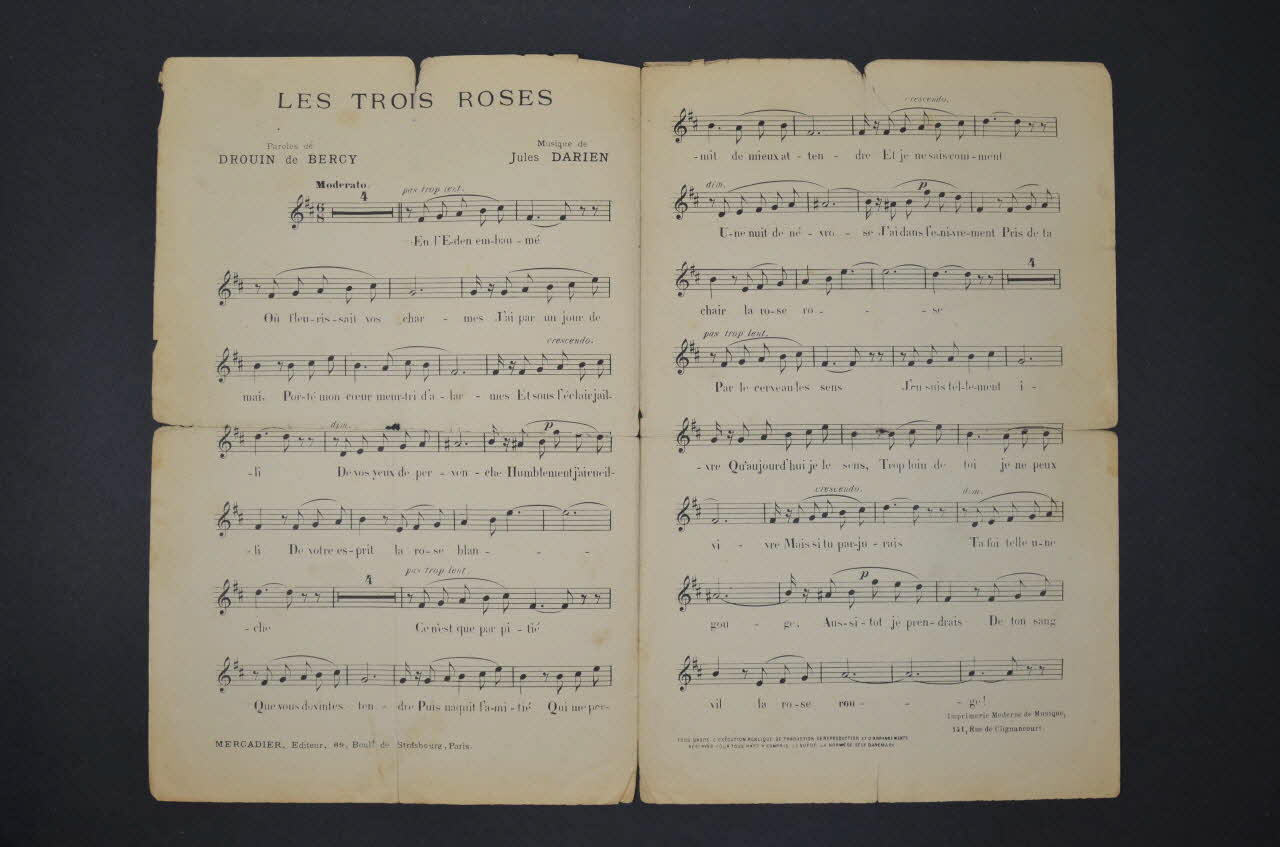 LES TROIS ROSES
Paroles de
DROUIN de BERCY
Musique de
Jules DARIEN
Moderato.
4
pas trop lent.
6
8
En l'E-den em-bau-mé
Où fleu-ris-sait vos char-mes J'ai par un jour de
crescendo.
mai, Por-té mon cœur meur-tri d'a-lar-mes Et sous l'éclair jail-
dim.
p
-li De vos yeux de per-ven-che Humblement j'ai cueil-
-li De votre es-prit la ro-se blan-
4
pas trop lent.
-che Ce n'est que par pi-tié
Que vous devintes ten-dre Puis naquit l'a-mi-tié Qui me per-
MERCADIER, Editeur, 69, Boulᵈ de Strasbourg, Paris.
crescendo.
-mit de mieux at-ten-dre Et je ne sais com-ment
dim.
p
U-ne nuit de né-vro-se J'ai dans l'e-ni-vre-ment Pris de ta
4
chair la ro-se ro-se
pas trop lent.
Par le cerveau les sens J'en suis tel-le-ment i-
-vre Qu'aujourd'hui je le sens, Trop loin de toi je ne peux
crescendo.
dim.
vi-vre Mais si tu par-ju-rais Ta foi telle u-ne
p
gou-ge, Aus-si-tot je pren-drais De ton sang
vil la ro-se rou-ge!
Imprimerie Moderne de Musique,
141, Rue de Clignancourt.
TOUS DROITS D'EXÉCUTION PUBLIQUE DE TRADUCTION DE REPRODUCTION ET D'ARRANGEMENTS
RESERVÉS POUR TOUS PAYS Y COMPRIS LA SUÈDE LA NORWÈGE ET LE DANEMARK